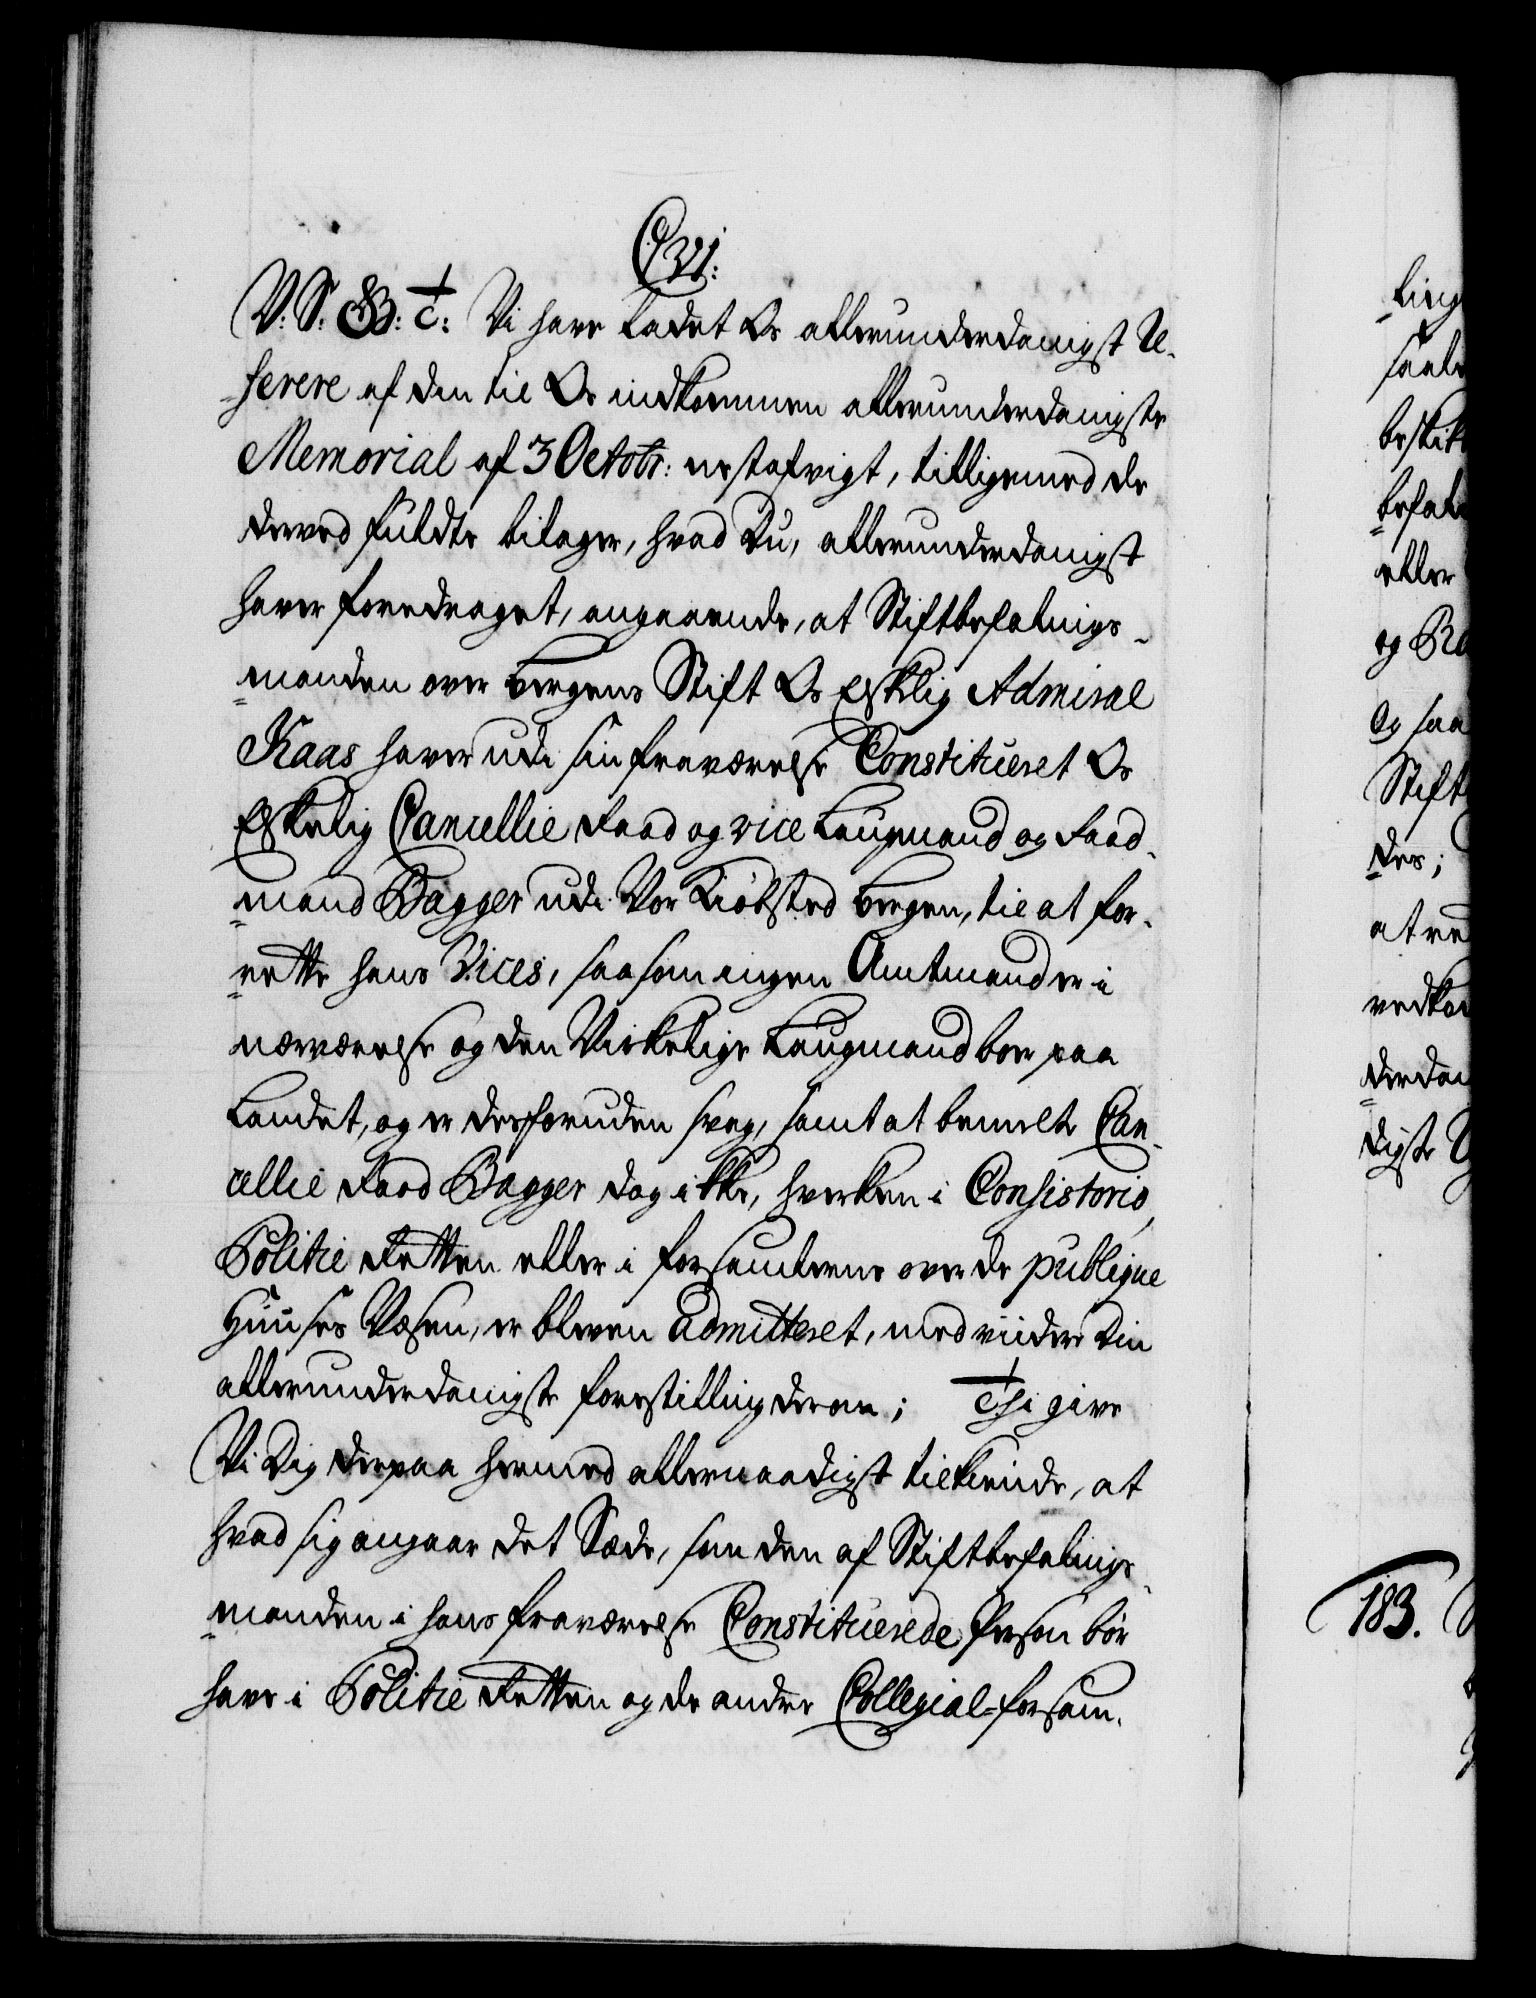 C VI:
V: S: G: B: t: Vi have ladet Os allerunderdanigst Re-
ferere af den til Os indkommen allerunderdanigste
Memorial af 3 Octobr: nestafvigt, tilligemed de
derved fuldte bilager, hvad Du, allerunderdanigst
haver foredraget, angaaende, at Stiftbefalings-
manden over bergens Stift Os Elskelig Admiral
Kaas haver udi sin fraværelse Constitueret Os
Elskelig Cancellie Raad og vice Laugmand og Raad-
mand Dagger udi Vor Kiøbsted bergen, til at for-
rette hans Vices, saasom ingen Amtmand er i
nærværelse og den Virkelige Laugmand boer paa
Landet, og er desforuden svag, samt at bemelte Can-
cellie Raad Dagger dog ikke, hverken i Consistorio,
Politie Retten eller i forsamlerne over de publique
Huuses Væsen, er bleven admitteret, med viidere Din
allerunderdanigste forestilling derom; Thi give
Vi Dig derpaa hermed allernaadigst tilkiende, at
hvad sig angaar det Sæde, som den af Stiftbefalings-
manden i hans fraværelse Constituerede Person bør
have i Politie Retten og de andre Collegial-forsam-
ling
saale
beskik
befal
eller
og Ra
Og saa
Stift
des;
at re
vedko
derdan
digste
183.